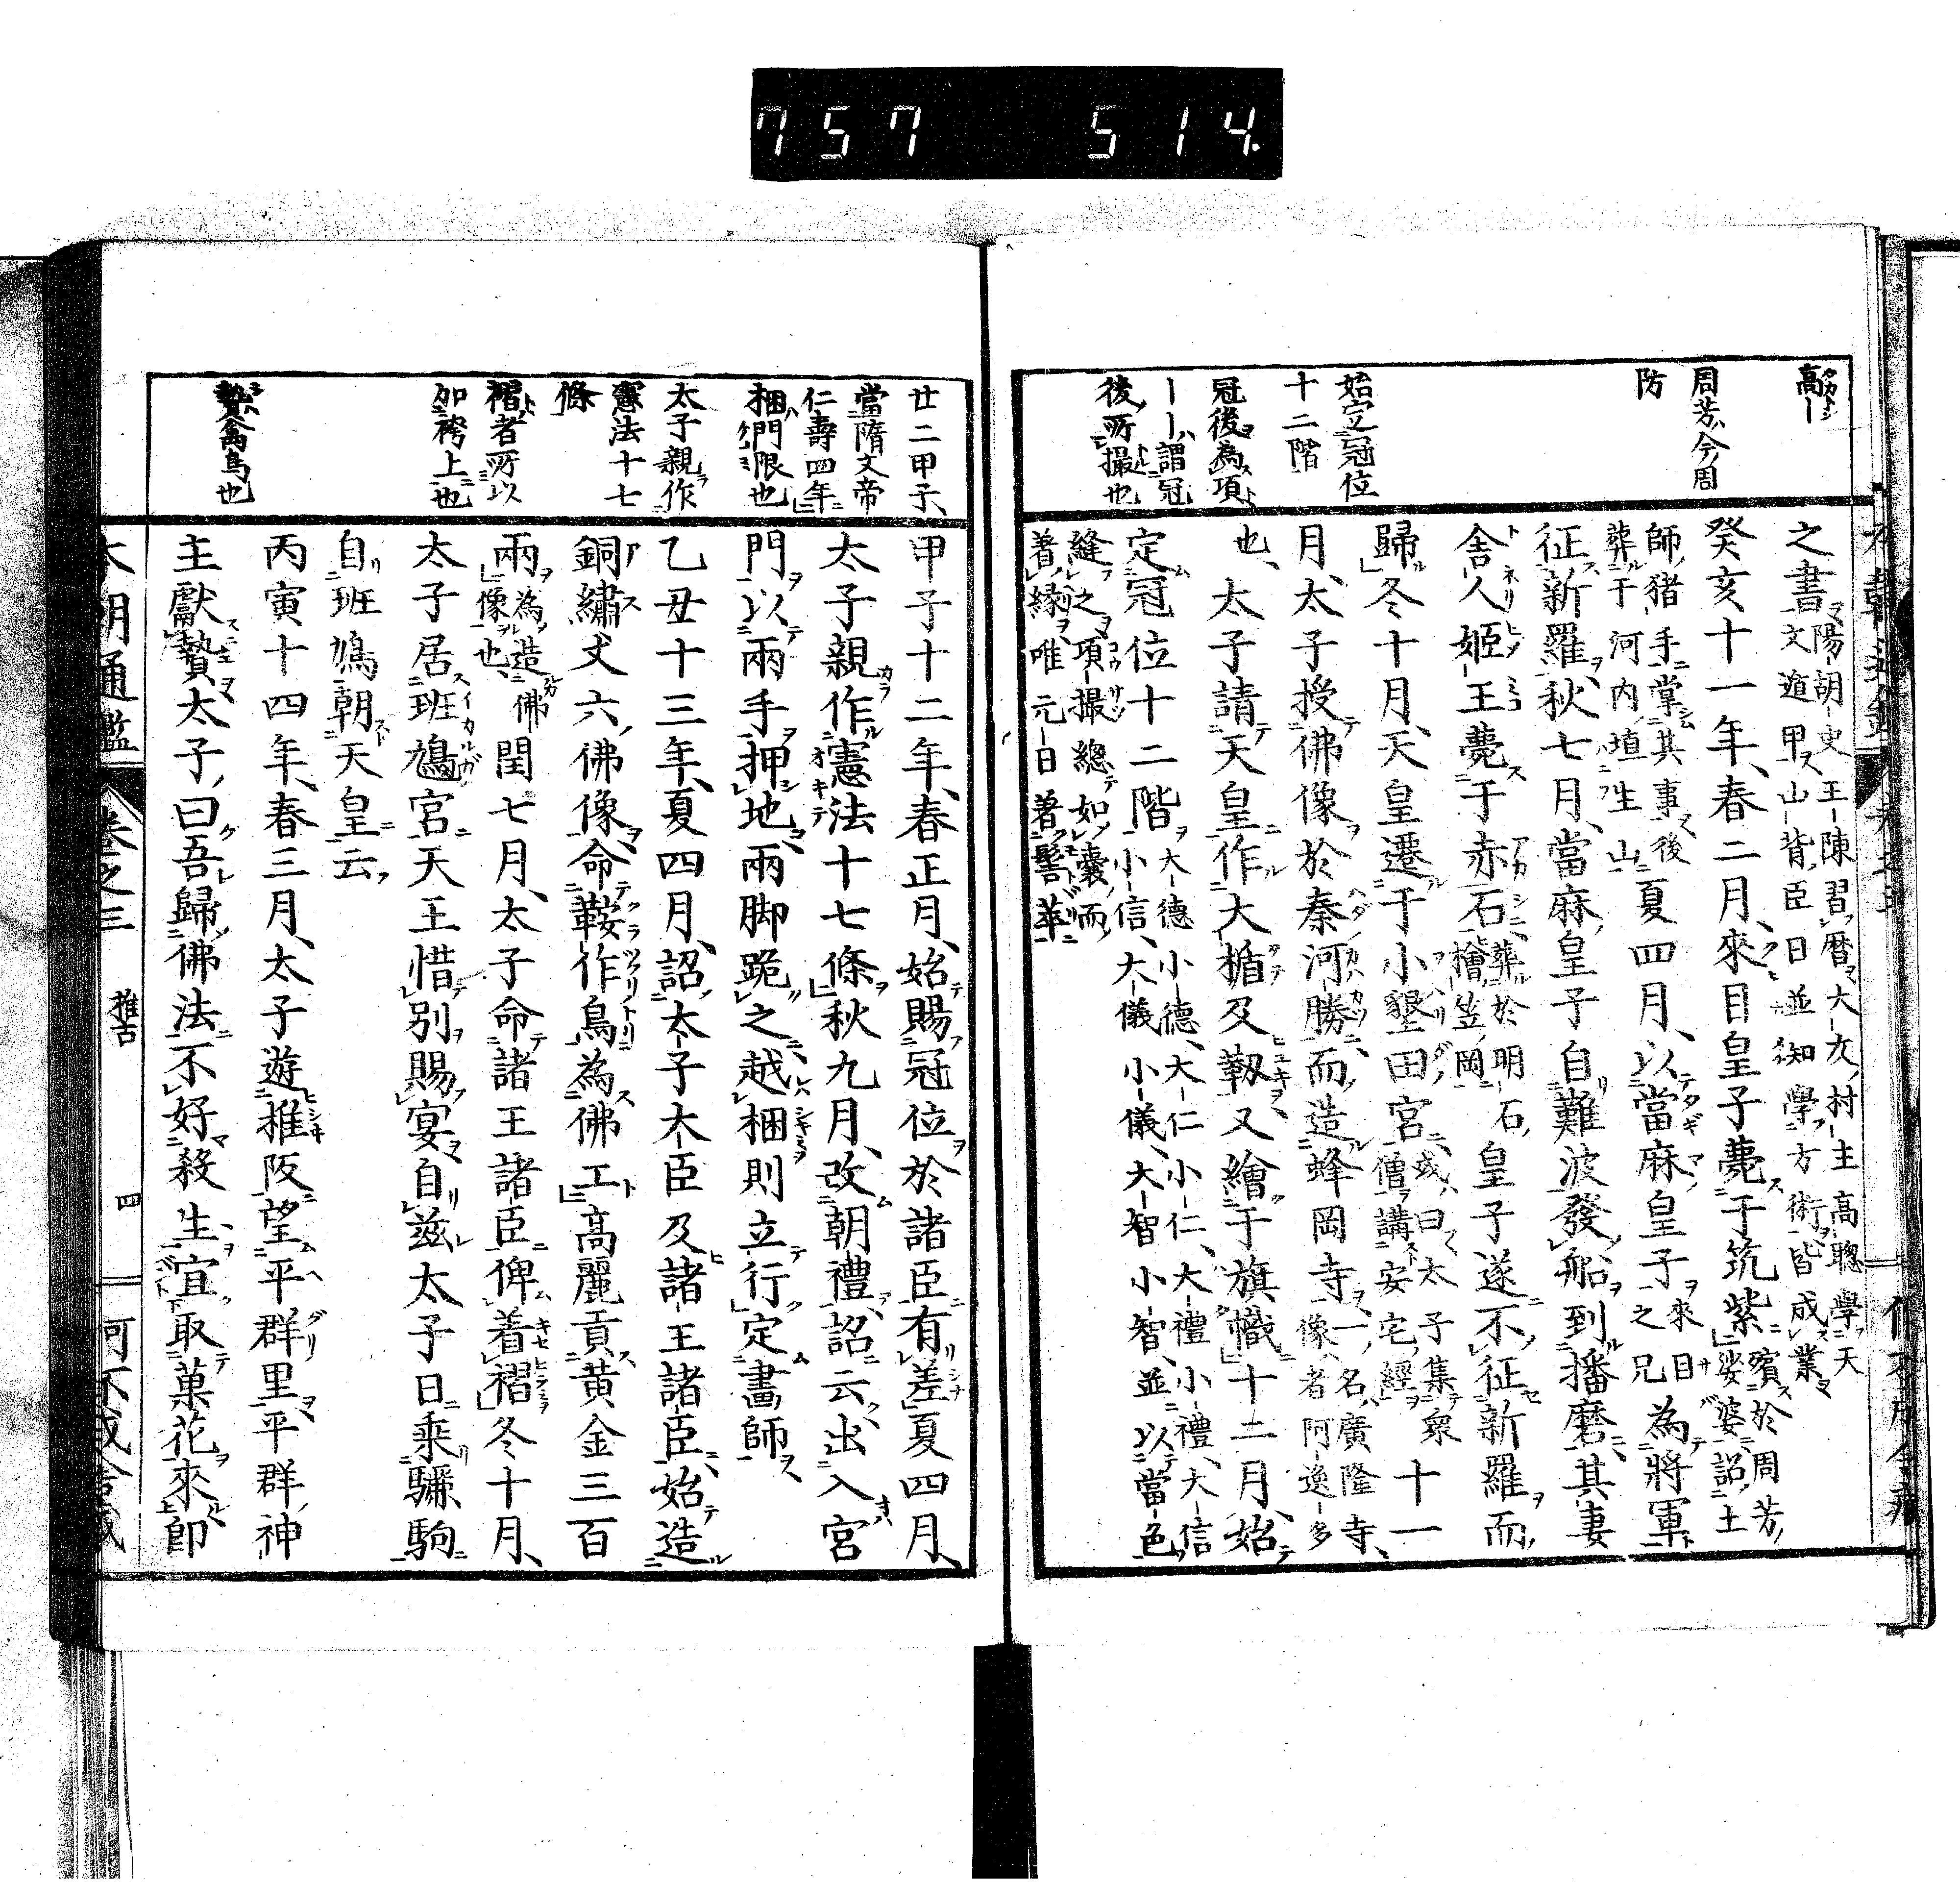 757 514.
高｜
周芳今周
防
始定冠位
十二階
冠後為項
｜｜謂冠
後所撮也
之書陽胡史王陳習暦大友村主高聰學天
文遁甲山背臣日並知學方術皆成業
癸亥十一年春二月來目皇子薨于筑紫殯於周芳
娑婆詔土
師猪手掌其事後
葬于河内埴生山夏四月以當麻皇子來目
之兄為將軍
征新羅秋七月當麻皇子自難波發船到播磨其妻
舎人姫王薨于赤石葬於明石
檜笠岡皇子遂不征新羅而
歸冬十月天皇遷于小墾田宮或曰太子集衆
僧講安宅經十一
月太子授佛像於秦河勝而造蜂岡寺一名廣隆寺
像者阿逸多
也太子請天皇作大楯及靫又繪于旗幟十二月始
定冠位十二階大德小德大仁小仁大禮小禮大信
小信大儀小儀大智小智並以當色
縫之項撮總如嚢而
着縁唯元日着髻華
廿二甲子
當隋文帝
仁壽四年
梱門限也
太子親作
憲法十七
條
褶者所以
加袴上也
贄禽鳥也
甲子十二年春正月始賜冠位於諸臣有差夏四月
太子親作憲法十七條秋九月改朝禮詔云出入宮
門以兩手押地兩脚跪之越梱則立行定畫師
乙丑十三年夏四月詔太子大臣及諸王諸臣始造
銅繡丈六佛像命鞍作鳥為佛工高麗貢黄金三百
兩為造佛
像也閏七月太子命諸王諸臣俾着褶冬十月
太子居班鳩宮天王惜別賜宴自兹太子日乘驪駒
自班鳩朝天皇云
丙寅十四年春三月太子遊椎阪望平群里平群神
主獻贄太子曰吾歸佛法不好殺生宜取菓花來即
本朝通鑑 卷之三 推古 四